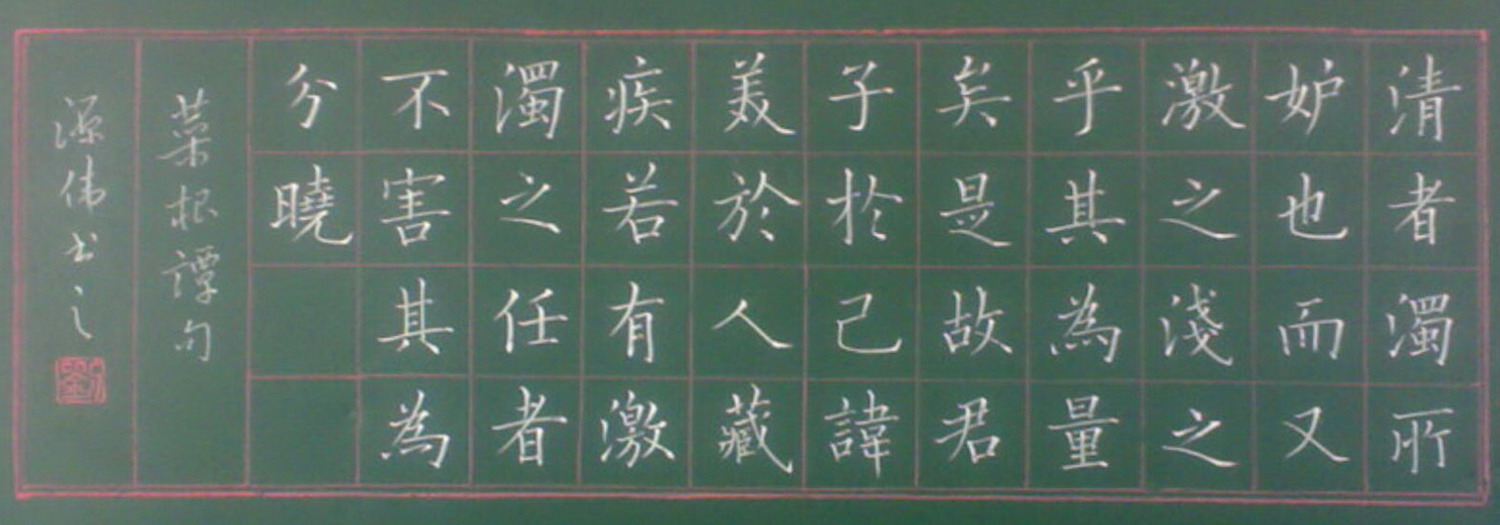 清者濁所
妒也而又
激之淺之
乎其為量
矣是故君
子於己諱
美於人藏
疾若有激
濁之任者
不害其為
分曉
菜根譚句
源伟书之
劉